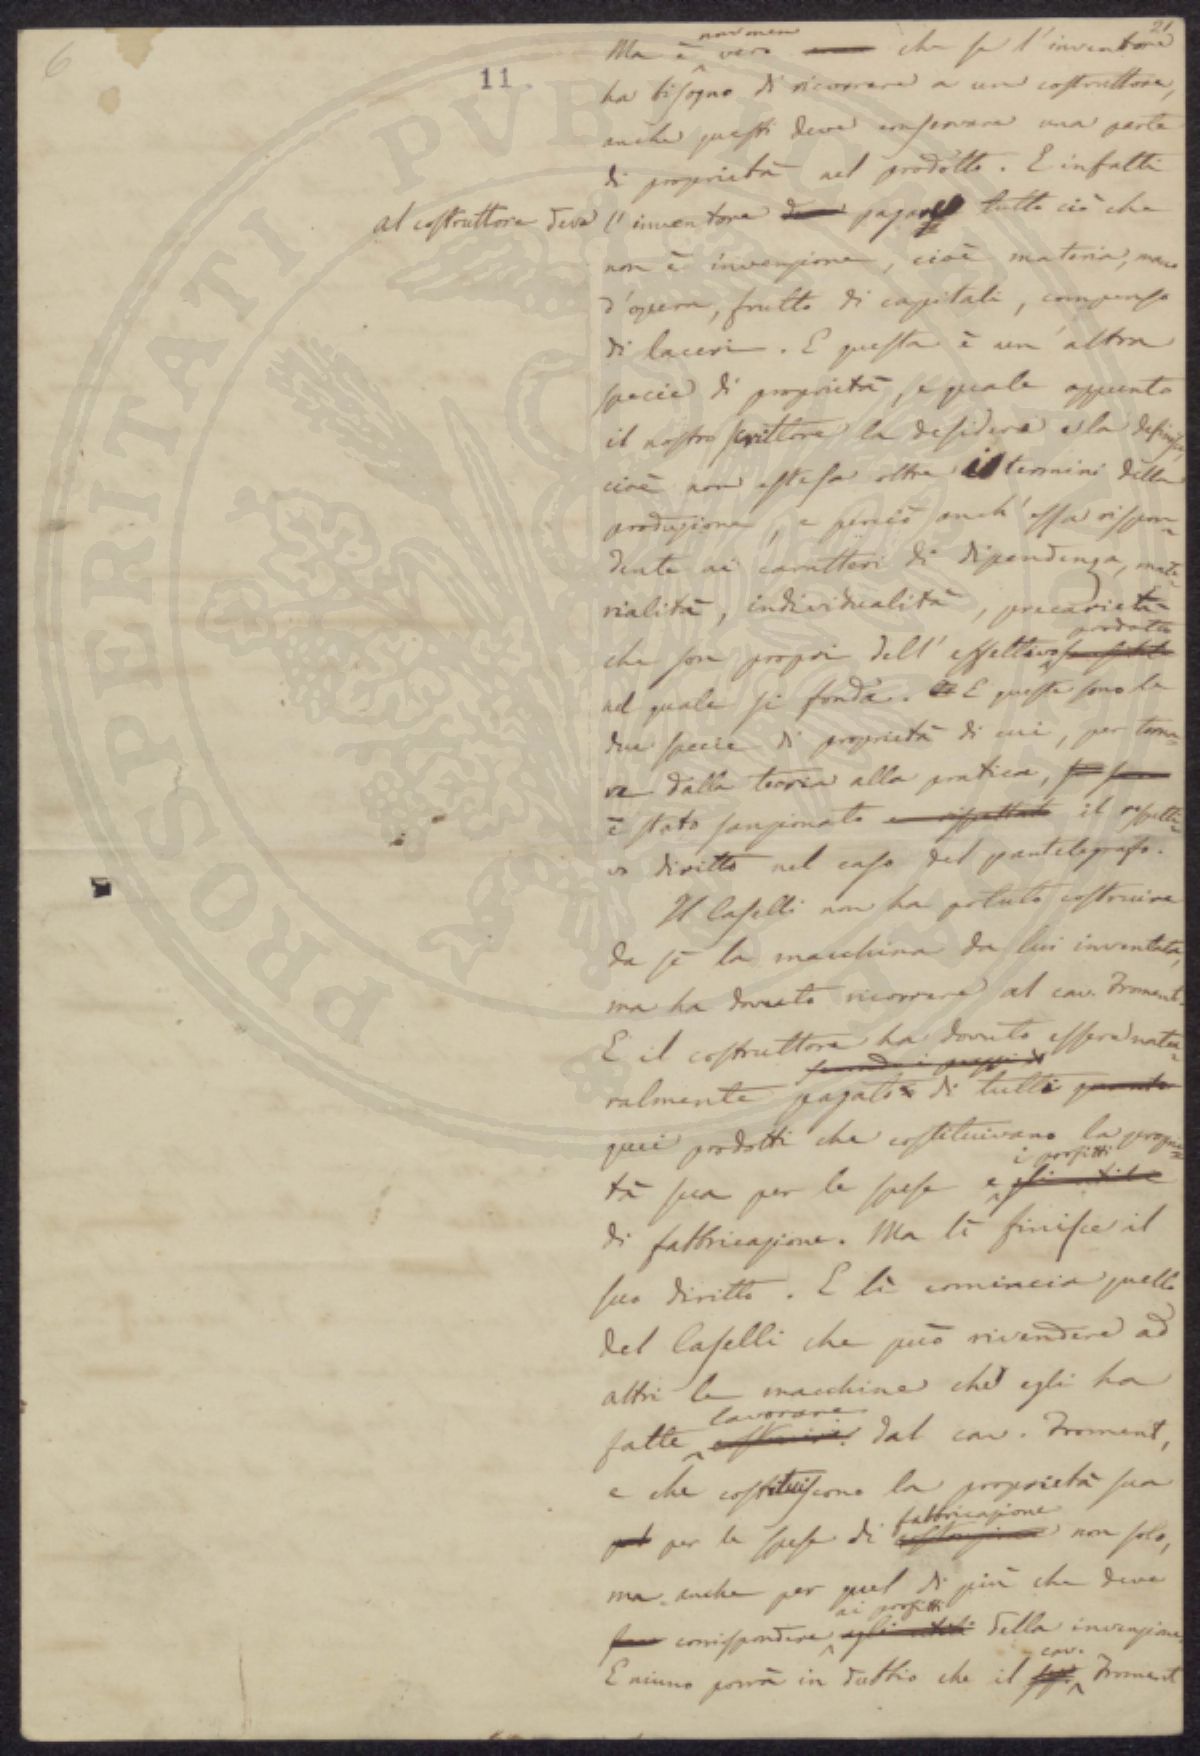 21
6
11.
PROSPERITATI PVBLICAE
Ma è nonmeno vero che se l'inventore
ha bisogno di ricorrere a un costruttore,
anche questi deve conservare una parte
di proprietà nel prodotto. E infatti
al costruttore deve l'inventore deve pagare tutto ciò che
non è invenzione, cioè materia, mano
d'opera, frutto di capitali, compenso
di lavori. E questa è un'altra
specie di proprietà, e quale appunto
il nostro scrittore la desidera e la definisce,
cioè non estesa oltre i termini della
produzione, e perciò anch'essa rispon=
dente ai caratteri di dipendenza, mate=
rialità, individualità, precarietà
che son propri dell'effettivo prodotto
nel quale si fonda. E queste sono le
due specie di proprietà di cui, per torna=
re dalla teoria alla pratica,
è stato sanzionato e rispettato il rispetti=
vo diritto nel caso del pantelegrafo.
Il Caselli non ha potuto costruire
da sè la macchina da lui inventata,
ma ha dovuto ricorrere al cav. Froment.
E il costruttore ha dovuto essere natu=
secondo i prezzi di
ralmente pagato di tutti quanto
quei prodotti che costituivano la proprie=
tà sua per le spese e i profitti gli utili
di fabbricazione. Ma lì finisce il
suo diritto. E lì comincia quello
del Caselli che può rivendere ad
altri le macchine che egli ha
fatte lavorare costruire dal cav. Froment,
e che costituiscono la proprietà sua
per le spese di fabbricazione costruzione non solo,
ma anche per quel di più che deve
corrispondere ai profitti agli utili della invenzione.
E niuno porrà in dubbio che il cav. Froment